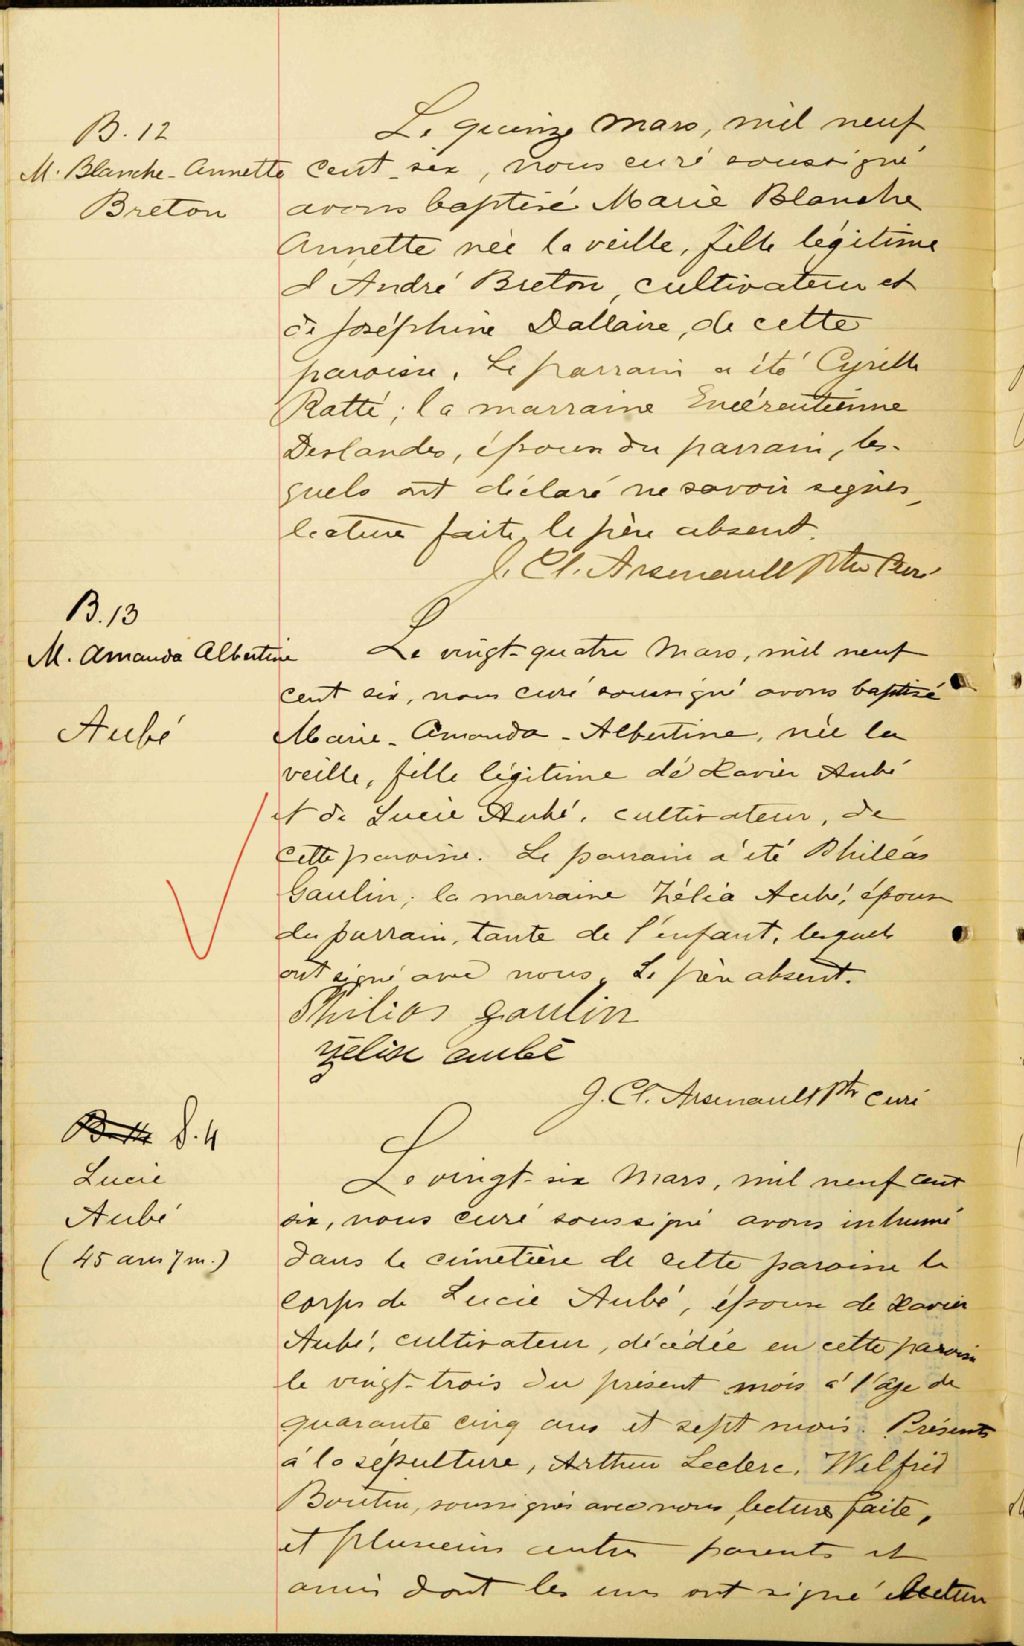 B. 12
M. Blanche-Annette
Breton
Le quinze mars, mil neuf
cent-six, nous curé soussigné
avons baptisé Marie Blanche
Annette née la veille, fille légitime
d'André Breton, cultivateur et
de Joséphine Dallaire, de cette
paroisse. Le parrain a été Cyrille
Ratté; la marraine
Deslandes, épouse du parrain, les-
quels ont déclaré ne savoir signer,
lecture faite, le père absent.
J. Cl. Arsenault Ptre Curé
B. 13
M. Amanda Albertine
Aubé
Le vingt-quatre mars, mil neuf
cent six, nous curé soussigné avons baptisé
Marie-Amanda-Albertine, née la
veille, fille légitime de Xavier Aubé
et de Lucie Aubé, cultivateur, de
cette paroisse. Le parrain a été Philéas
Gaulin; la marraine Zélia Aubé, épouse
du parrain, tante de l'enfant, lesquels
ont signé avec nous. Le père absent.
Philias Gaulin
Zélise Aubé
J. Cl. Arsenault Ptr Curé
S. 4
Lucie
Aubé
(45 ans 7 m.)
Le vingt-six mars, mil neuf cent
six, nous curé soussigné avons inhumé
dans le cimetière de cette paroisse le
corps de Lucie Aubé, épouse de Xavier
Aubé, cultivateur, décédée en cette paroisse
le vingt-trois du présent mois à l'âge de
quarante cinq ans et sept mois. Présents
à la sépulture, Arthur Leclerc, Wilfrid
Boutin, soussignés avec nous, lecture faite,
et plusieurs autres parents et
amis dont les uns ont signé lecture